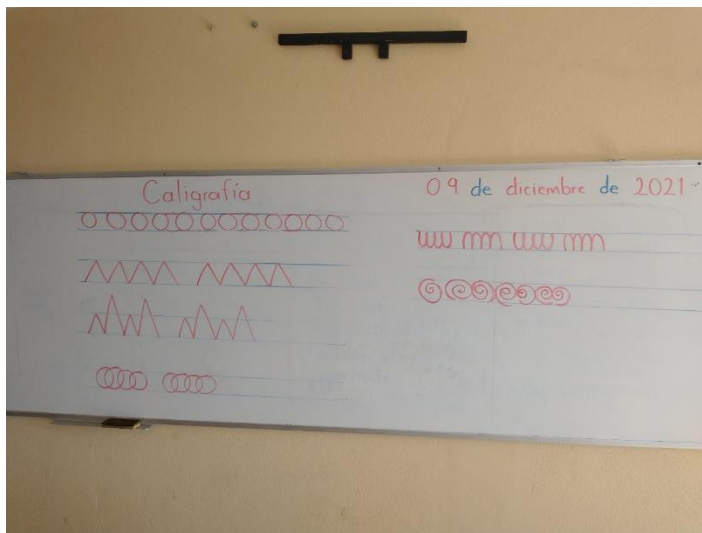 Caligrafía
09 de diciembre de 2021